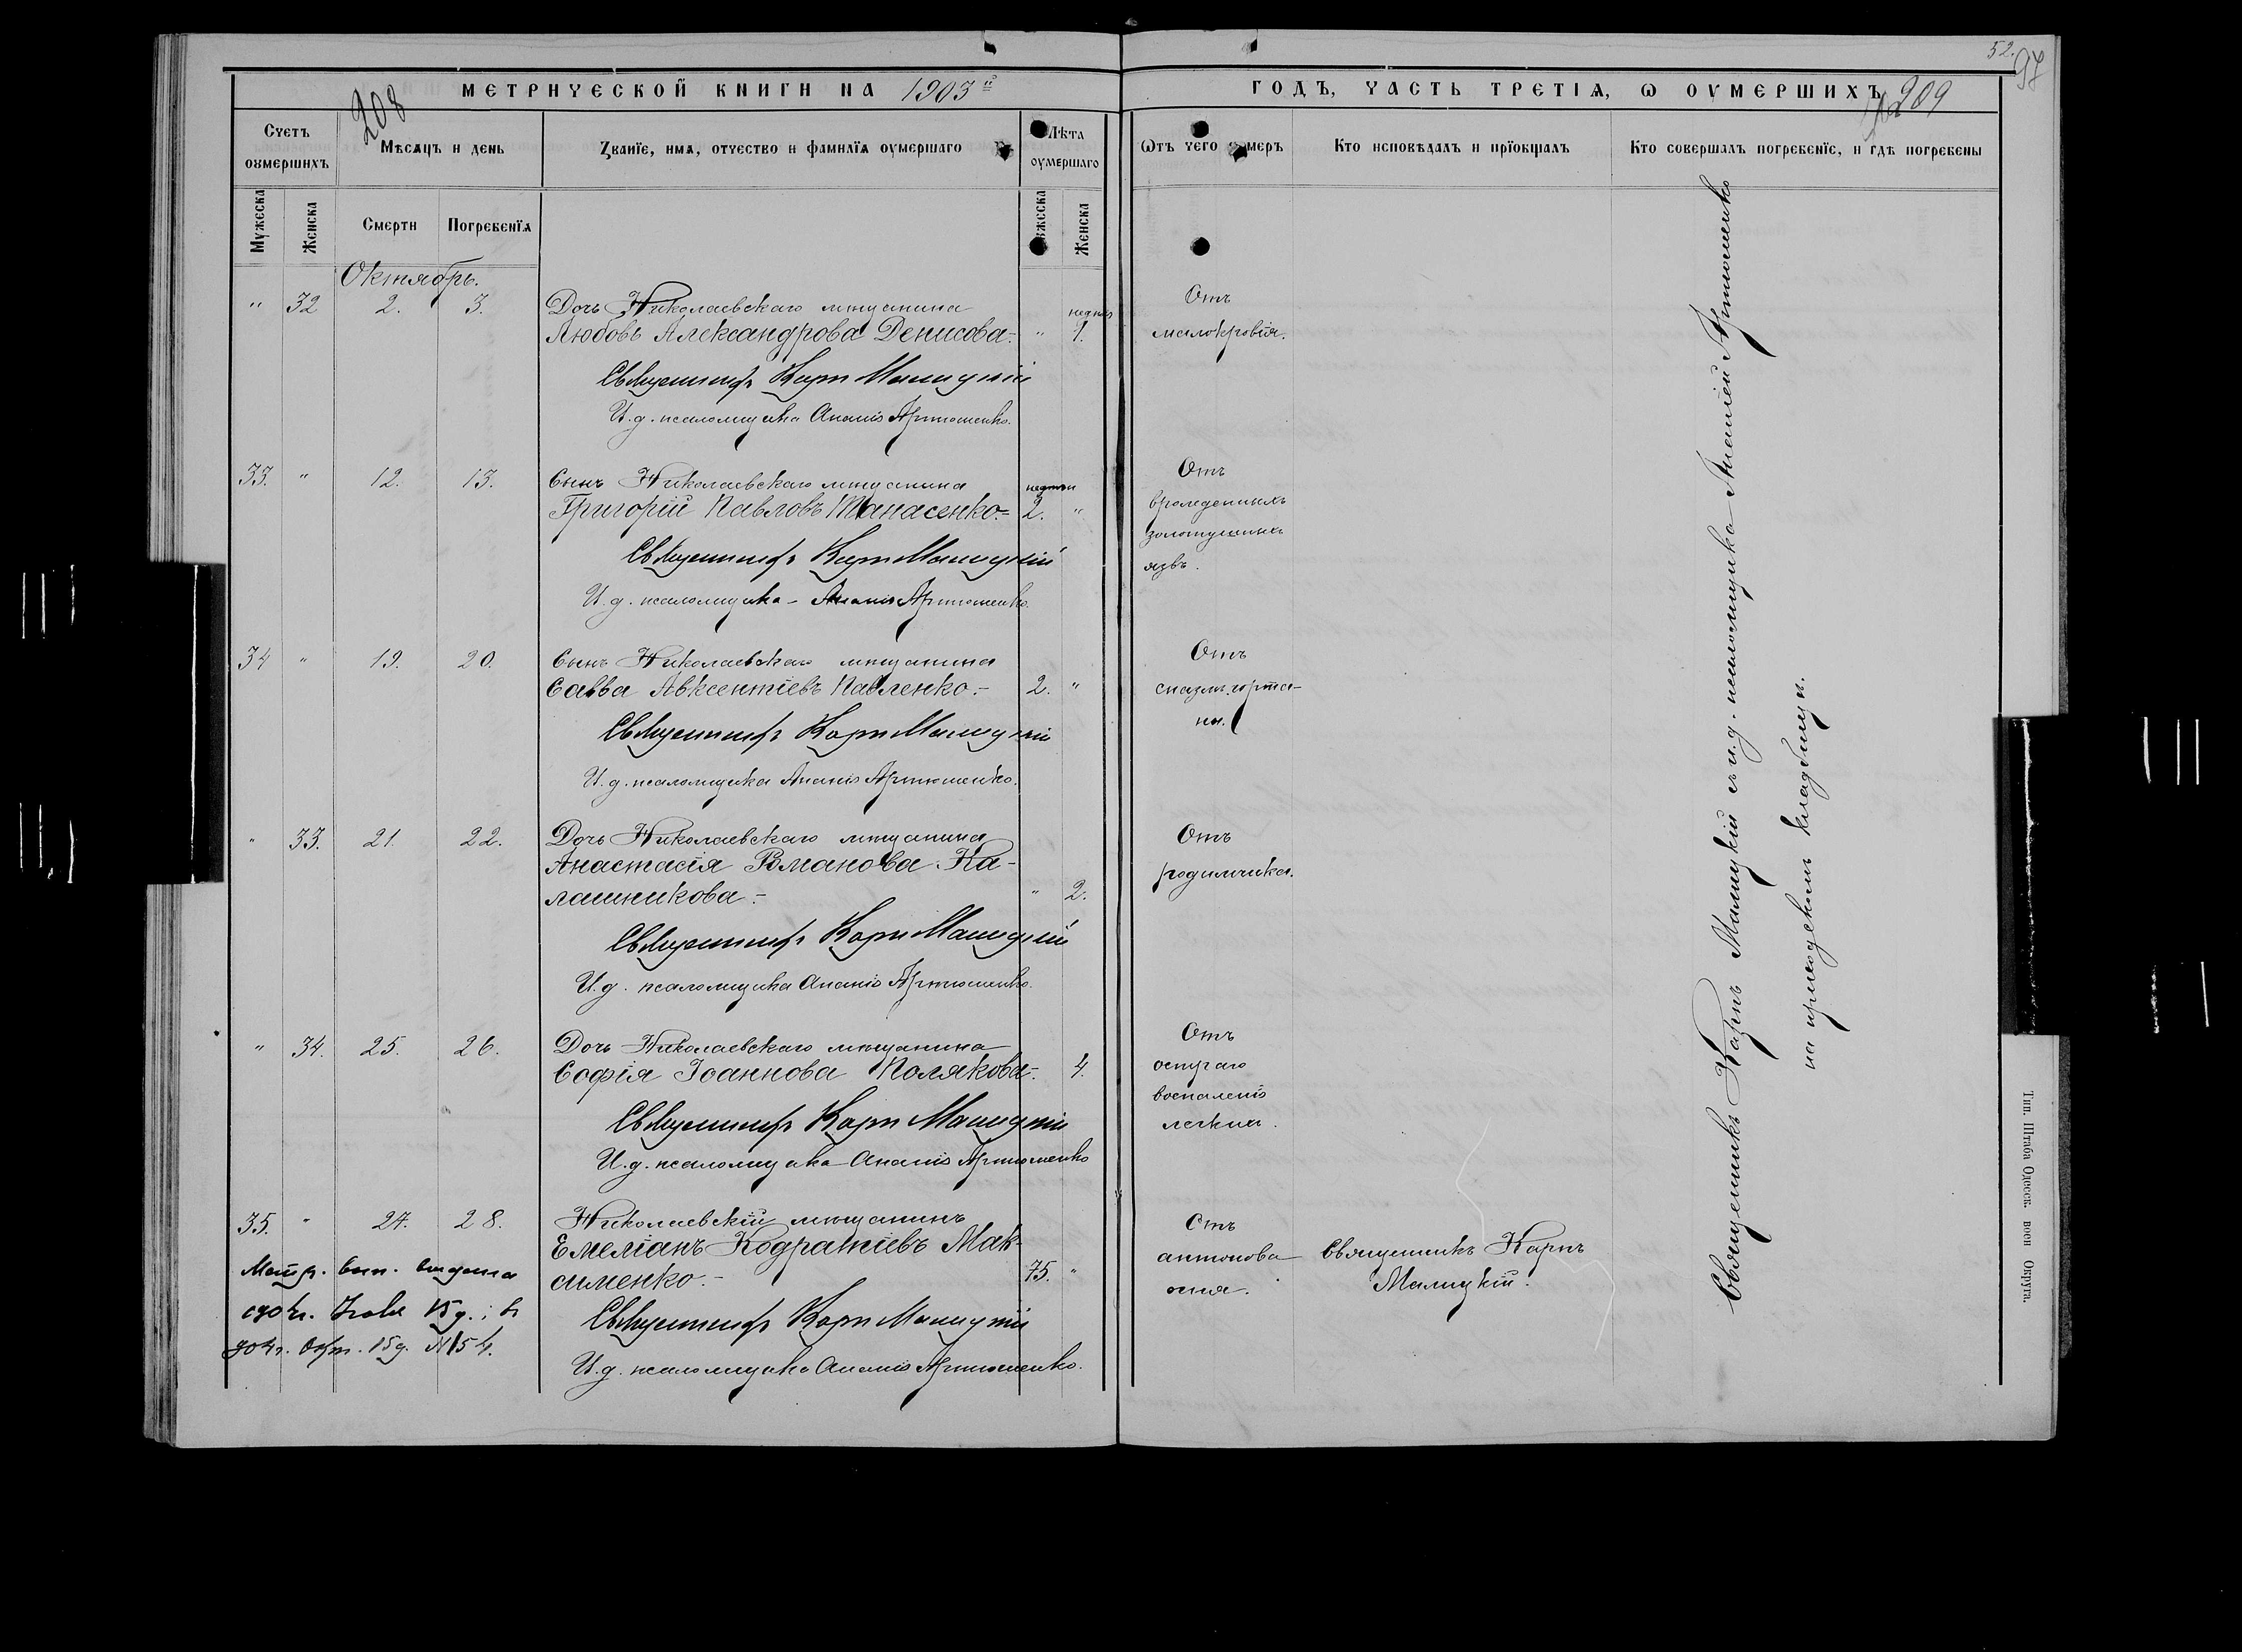 52.
97
208
209
МЕТРИЧЕСКОЙ КНИГИ НА 1903й
ГОДЪ, ЧАСТЬ ТРЕТІѦ, Ѡ ОУМЕРШИХЪ
Счетъ оумершихъ
Мѣсѧцъ и день
Званїе, имѧ, отчество и фамилїѧ оумершаго
Лѣта оумершаго
Ѿтъ чего оумеръ
Кто исповѣдалъ и прїобщалъ
Кто совершалъ погребенїе, и гдѣ погребены
Мужеска
Женска
Смерти
Погребенїѧ
Мужеска
Женска
Октябрь.
" 32 2. 3. Дочь Николаевскаго мѣщанина
Любовь Александрова Денисова.- " 1.
Отъ
малокровія.
Священникъ Карпъ Малицкій
И.д. псаломщика Ананій Артюшенко.
33. " 12. 13. Сынъ Николаевскаго мѣщанина
недѣли
Григорій Павловъ Танасенко.= 2. "
Отъ
врожденныхъ
золотушныхъ
язвъ.
Священникъ Карпъ Малицкій
И.д. псаломщика - Ананій Артюшенко.
34 " 19. 20. Сынъ Николаевскаго мѣщанина
Савва Авксентіевъ Павленко.- 2. "
Отъ
спазмы горта-
ни.
Священникъ Карпъ Малицкій
И.д. псаломщика Ананій Артюшенко.
" 33. 21. 22. Дочь Николаевскаго мѣщанина
Анастасія Романова Ка-
лашникова.- " 2.
Отъ
родимчика.
Священникъ Карпъ Малицкій
И.д. псаломщика Ананій Артюшенко.
" 34. 25. 26. Дочь Николаевскаго мѣщанина
Софія Іоаннова Полякова.- 4.
Отъ
остраго
воспаленія
легкихъ.
Священникъ Карпъ Малицкій
И.д. псаломщика Ананій Артюшенко
35. " 27. 28. Николаевскій мѣщанинъ
Емеліанъ Кодратіевъ Мак-
сименко.- 75. "
Отъ
антонова
огня.
Священникъ Карпъ
Малицкій.
Священникъ Карпъ Малицкій
И.д. псаломщика Ананій Артюшенко.
Метр. вып. выдана
15 г. №154.
Священникъ Карпъ Малицкій съ и.д. псаломщика Ананіей Артюшенко
на приходскомъ кладбищѣ.
Тип. Штаба Одесск. воен Округа.